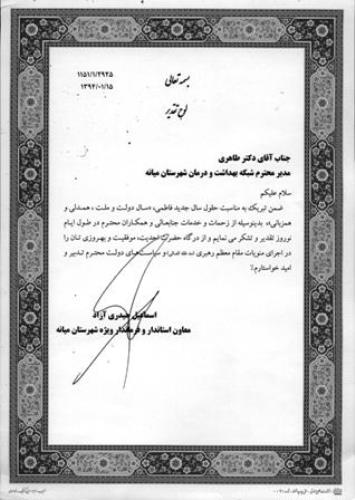 ۱۱۵۱/۱/۲۹۲۵
۱۳۹۴/۰۱/۱۵
بسمه تعالی
لوح تقدیر
جناب آقای دکتر طاهری
مدیر محترم شبکه بهداشت و درمان شهرستان میانه
سلام علیکم
ضمن تبریک به مناسبت حلول سال جدید فاطمی، «سال دولت و ملت ، همدلی و
همزبانی»، بدینوسیله از زحمات و خدمات جنابعالی و همکاران محترم در طول ایام
نوروز تقدیر و تشکر می نمایم و از درگاه حضرت احدیت، موفقیت و بهروزی تان را
در اجرای منویات مقام معظم رهبری و سیاست‌های دولت محترم تدبیر و
امید خواستارم./
اسماعیل حیدری آزاد
معاون استاندار و فرماندار ویژه شهرستان میانه